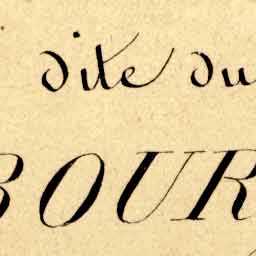 dite du
BOUR